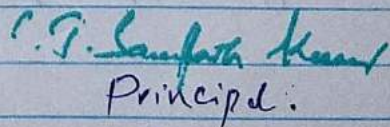 C. J. Sampath Kumar
Principal.